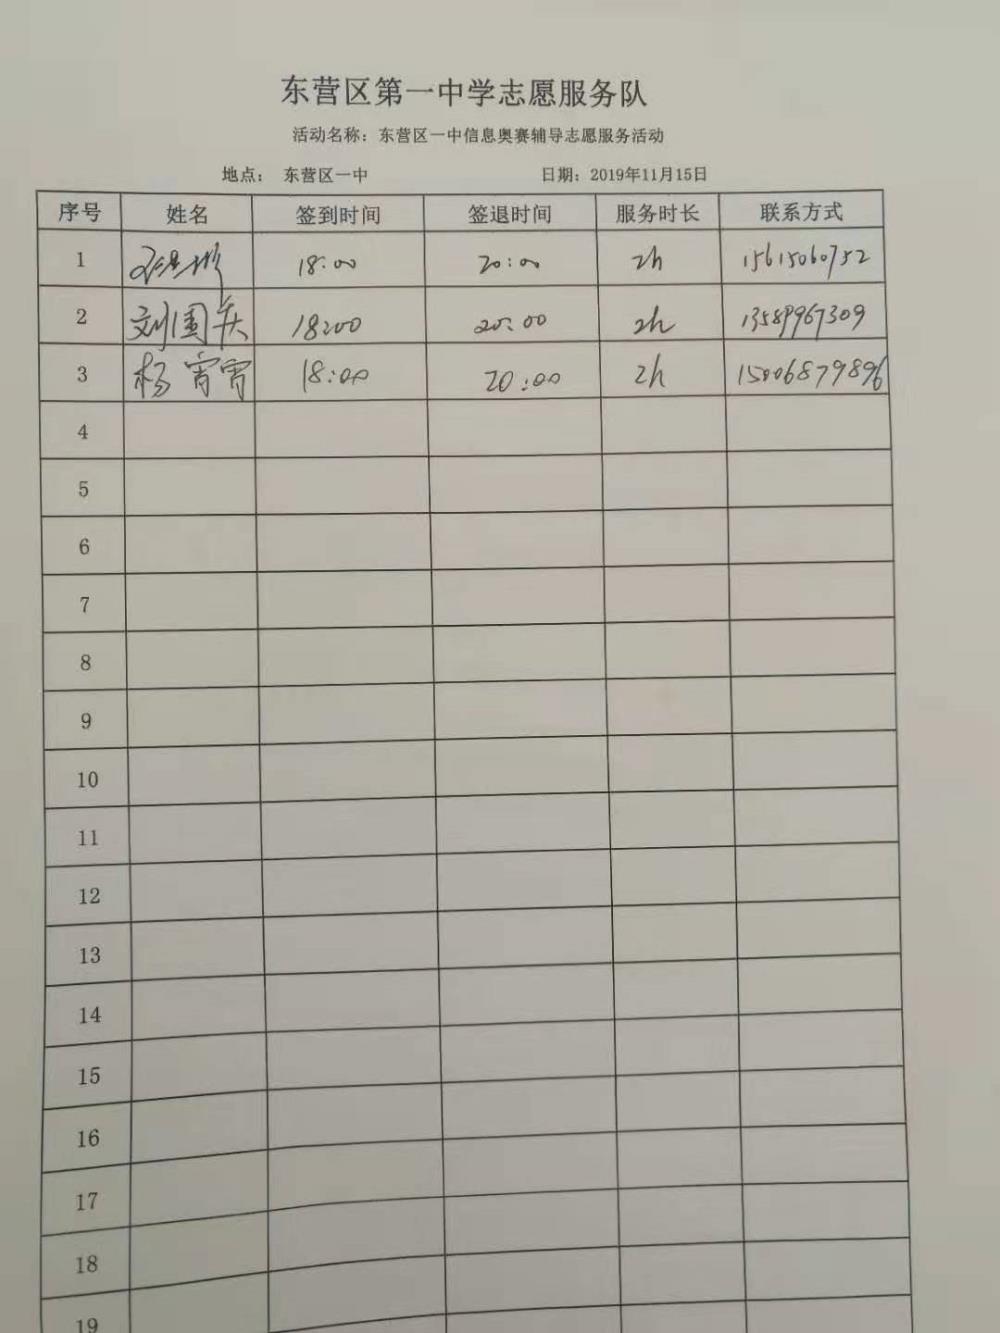 东营区第一中学志愿服务队
活动名称：东营区一中信息奥赛辅导志愿服务活动
地点： 东营区一中 日期：2019年11月15日
序号 姓名 签到时间 签退时间 服务时长 联系方式
1 18:00 20:00 2h 15615060752
2 刘国庆 18:00 20:00 2h 13589967309
3 杨宵宵 18:00 20:00 2h 15006879896
4
5
6
7
8
9
10
11
12
13
14
15
16
17
18
19